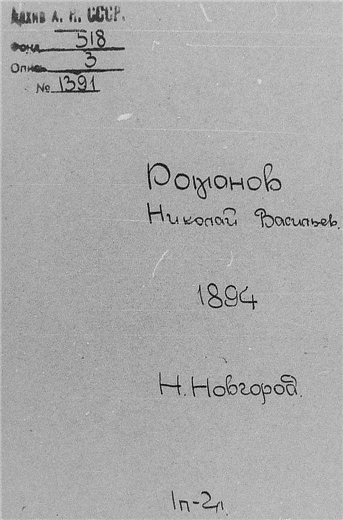 Архив А. Н. СССР.
Фонд 518
Опись 3
№ 1391
Романов
Николай Васильев.
1894
Н. Новгород.
1п-2л.